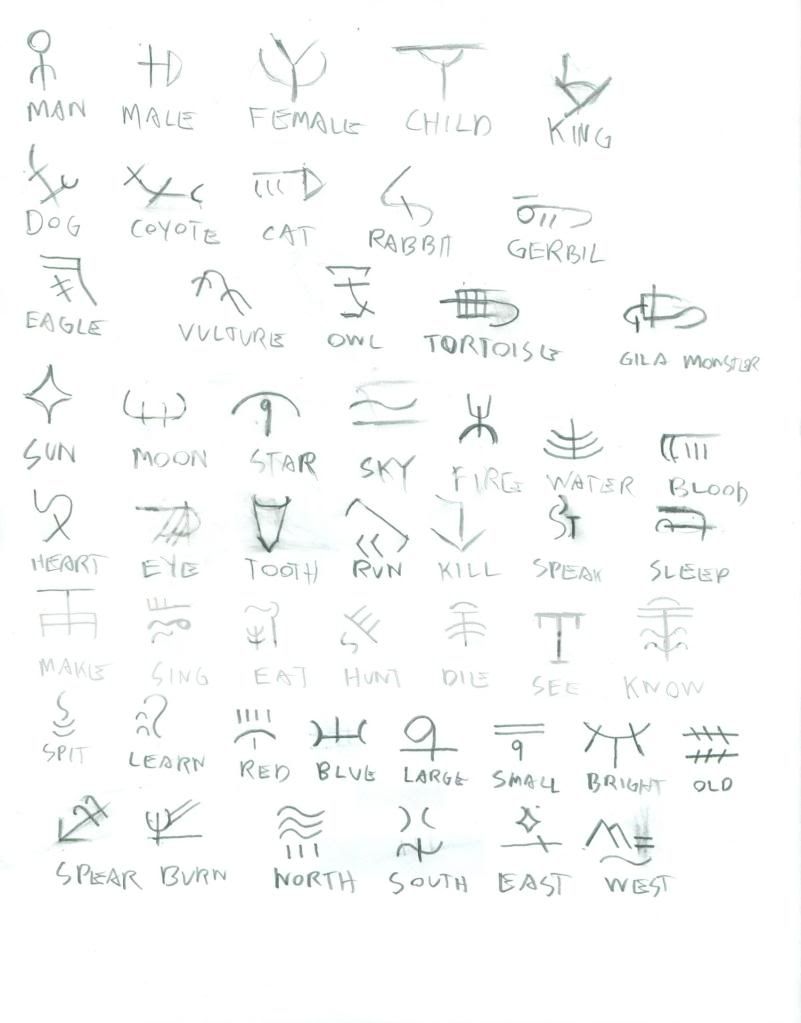 MAN MALE FEMALE CHILD KING
DOG COYOTE CAT RABBIT GERBIL
EAGLE VULTURE OWL TORTOISE GILA MONSTER
SUN MOON STAR SKY FIRE WATER BLOOD
HEART EYE TOOTH RUN KILL SPEAK SLEEP
MAKE SING EAT HUNT DIE SEE KNOW
SPIT LEARN RED BLUE LARGE SMALL BRIGHT OLD
SPEAR BURN NORTH SOUTH EAST WEST